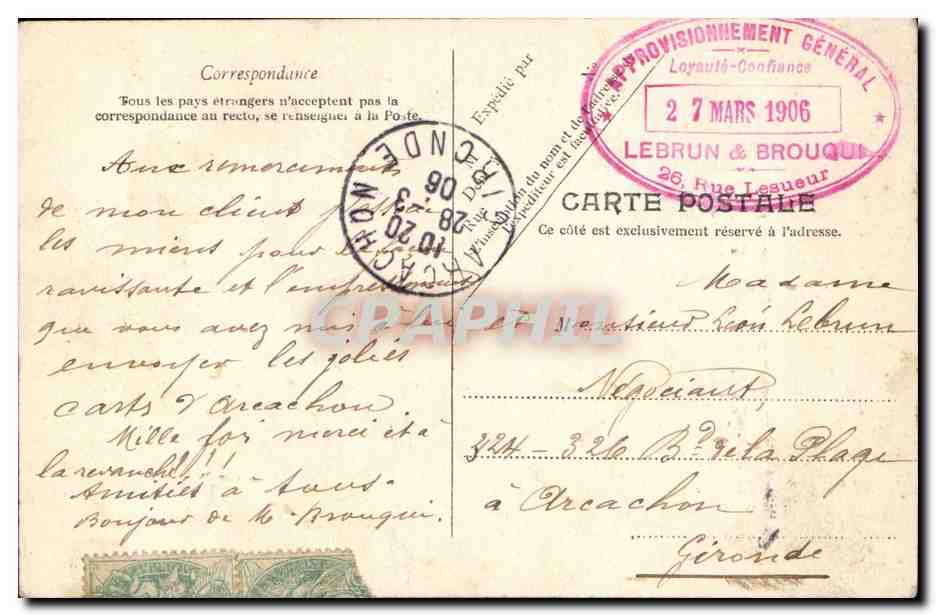 Correspondance
Tous les pays étrangers n'acceptent pas la
correspondance au recto, se renseigner à la Poste.
Aux remerciments
de mon client
les miens pour la
ravissante et l'empressement
que vous avez mis à
envoyer les jolies
carts d'Arcachon
Mille foi merci et à
la revanche!!!
Amitiés à tous.
Bonjour de M. Brouqui.
Expédié par
M
Dem
Rue
N°
L'inscription du nom et de l'adresse de
l'expéditeur est facultative.
ARCACHON GIRONDE
10 20
28 - 3
06
APPROVISIONNEMENT GÉNÉRAL
Loyauté-Confiance
2 7 MARS 1906
LEBRUN & BROUQUI
26, Rue Lesueur
CARTE POSTALE
Ce côté est exclusivement réservé à l'adresse.
CPAPHIL
Madame
et Monsieur Léon Lebrun
Négociant,
324 - 326 Bd de la Plage
à Arcachon
Gironde